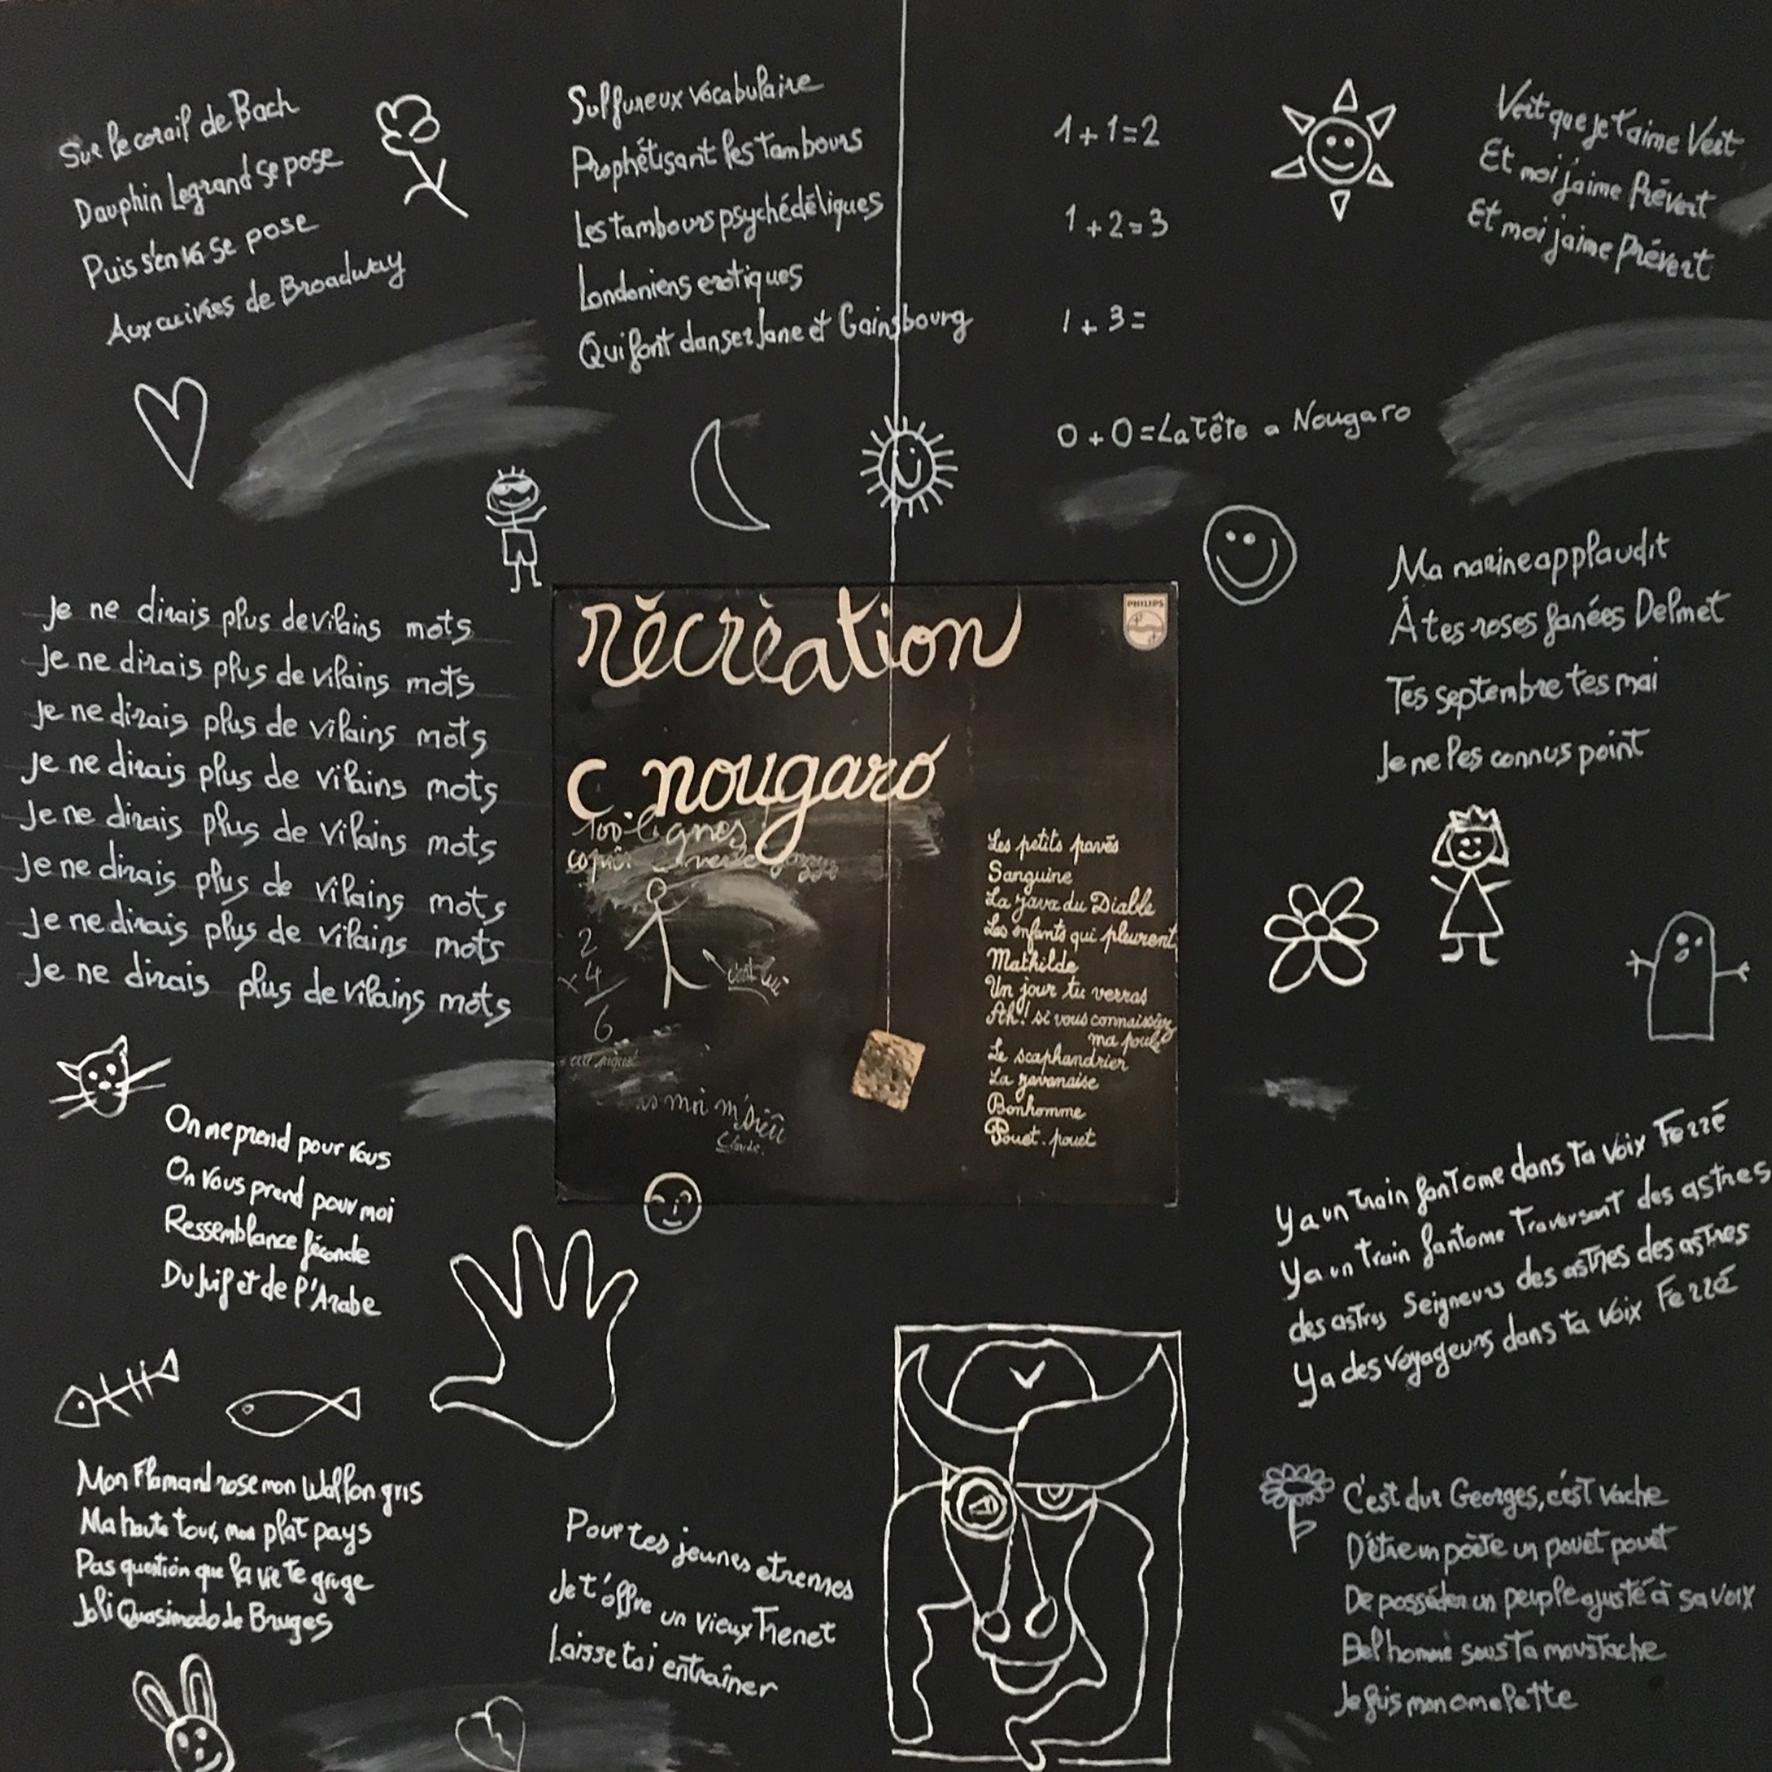 Sur le corail de Bach
Dauphin Legrand se pose
Puis s'en va se pose
Aux cuivres de Broadway
Sulfureux vocabulaire
Prophétisant les tambours
Les tambours psychédéliques
Londoniens erotiques
Qui font danser Jane et Gainsbourg
1+1=2
1+2=3
1+3=
0+0=La Tête a Nougaro
Vert que je t'aime Vert
Et moi j'aime Prévert
Et moi j'aime Prévert
Je ne dirais plus de vilains mots
Je ne dirais plus de vilains mots
Je ne dirais plus de vilains mots
Je ne dirais plus de vilains mots
Je ne dirais plus de vilains mots
Je ne dirais plus de vilains mots
Je ne dirais plus de vilains mots
Je ne dirais plus de vilains mots
récrèation
PHILIPS
c. nougaro
100 lignes
2
x4
6
c'est lui
moi m'sieu
Claude.
Les petits pavés
Sanguine
La java du Diable
Les enfants qui pleurent
Mathilde
Un jour tu verras
Ah! si vous connaissiez
ma poule
Le scaphandrier
La javanaise
Bonhomme
Pouet. pouet
Ma narine applaudit
À tes roses fanées Delmet
Tes septembre tes mai
Je ne les connus point
On me prend pour vous
On vous prend pour moi
Ressemblance féconde
Du Juif et de l'Arabe
Y a un train fantome dans ta voix Ferré
Y a un train fantome traversant des astres
des astres Seigneurs des astres des astres
Y a des voyageurs dans ta voix Ferré
Mon Flamand rose mon Wallon gris
Ma haute tour, mon plat pays
Pas question que la vie te gruge
Joli Quasimodo de Bruges
Pour tes jeunes etrennes
Je t'offre un vieux Trenet
Laisse toi entraîner
C'est dur Georges, c'est vache
D'être un poète un pouet pouet
De posséder un peuple ajusté à sa voix
Bel homme sous ta moustache
Je fuis mon omelette